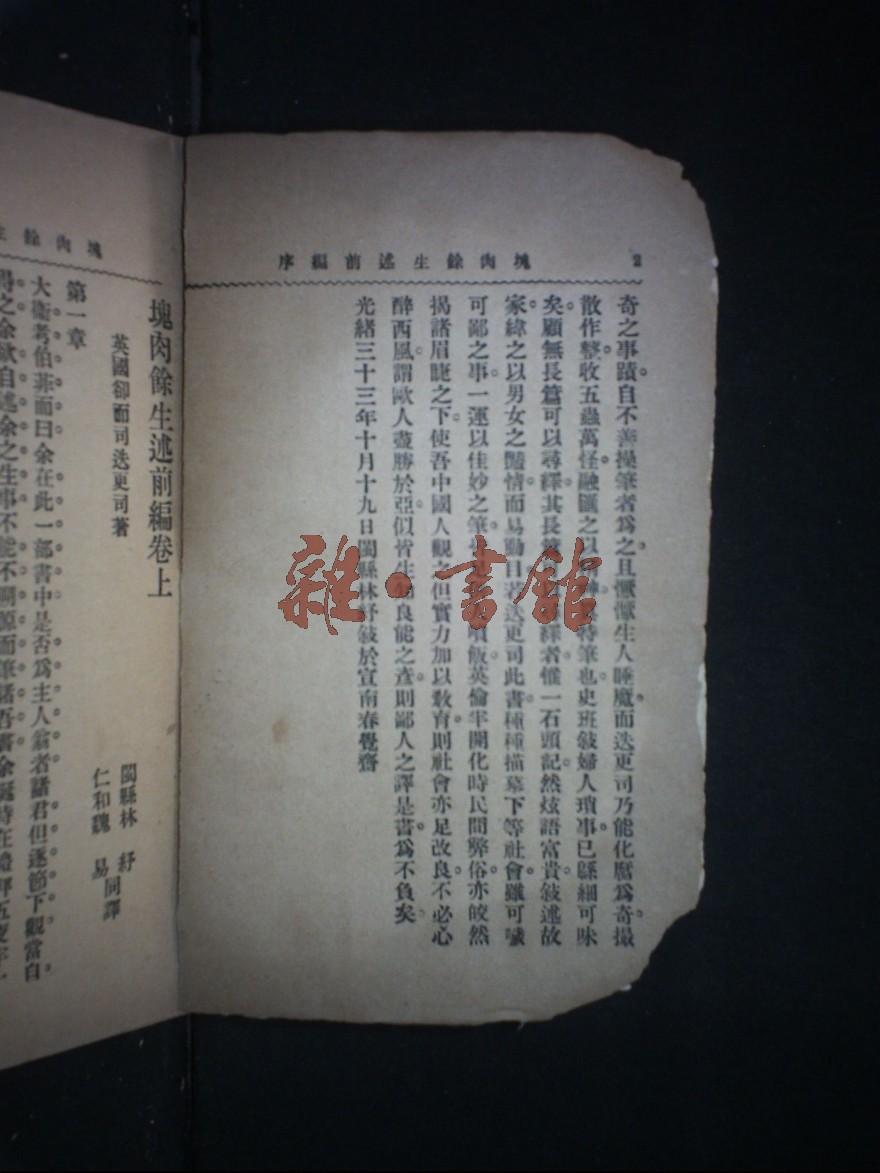 塊肉餘生述前編序
2
奇之事蹟自不善操筆者爲之且懨懨生人睡魔而迭更司乃能化腐爲奇撮
散作整收五蟲萬怪融匯之以精神眞特筆也史班敍婦人瑣事已緜細可味
矣顧無長篇可以尋繹其長篇可以尋繹者惟一石頭記然炫語富貴敍述故
家緯之以男女之豔情而易動目若迭更司此書種種描摹下等社會雖可噦
可鄙之事一運以佳妙之筆
噴飯英倫半開化時民間弊俗亦皎然
揭諸眉睫之下使吾中國人觀之但實力加以敎育則社會亦足改良不必心
醉西風謂歐人盡勝於亞似皆生知良能之彥則鄙人之譯是書爲不負矣
光緒三十三年十月十九日閩縣林紓敍於宣南春覺齋
雜·書館
塊肉餘
塊肉餘生述前編卷上
英國卻而司迭更司著
閩縣林紓
仁和魏易
同譯
第一章
大衛考伯菲而曰余在此一部書中是否爲主人翁者諸君但逐節下觀當自
得之余欲自述余之生事不能不溯源而筆諸吾書余誕時在禮拜五夜半